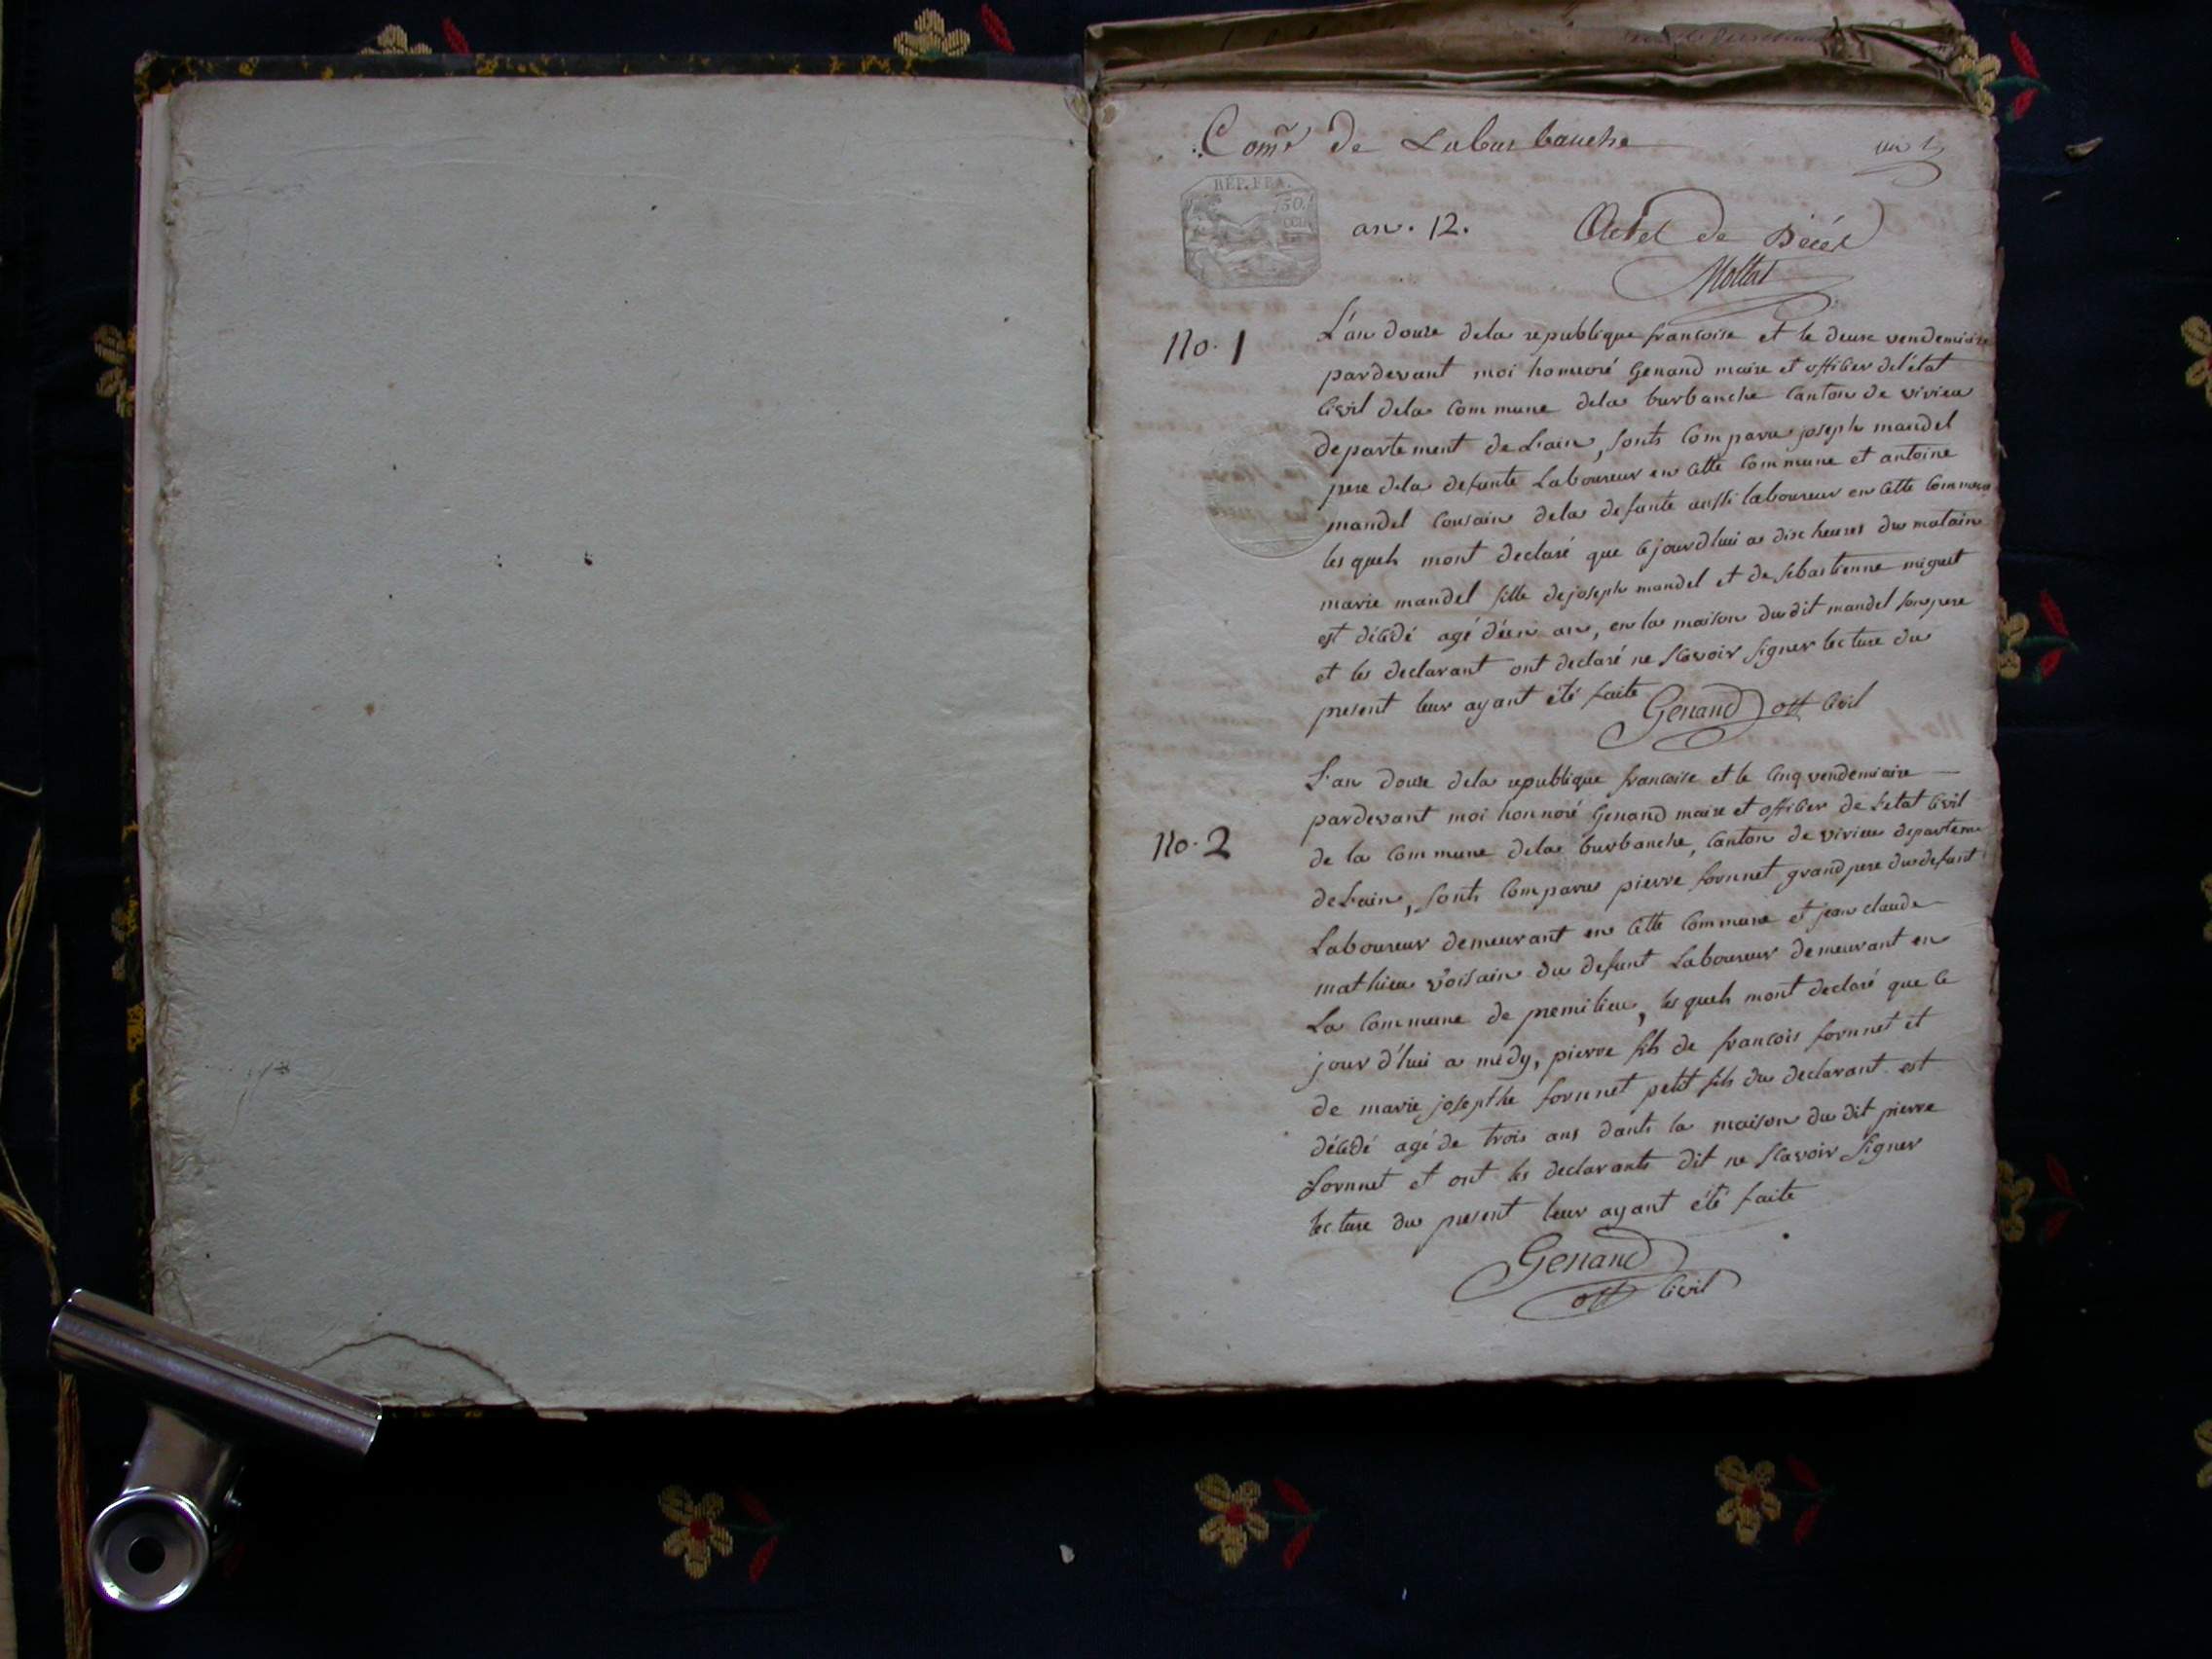 Com.e de Laburbanche
un 1
RÉP. FRA.
50.
CEN.
an. 12. Actes de Décés
No. 1
L'an douze dela republique francoise et le deuxe vendemiaire
pardevant moi honnoré Genand maire et officier del'état
Civil dela Commune dela burbanche Canton de virieu
departement de L'ain, sonts Comparu joseph mandel
pere dela defunte Laboureur en Cette Commune et antoine
mandel Cousain dela defunte aussi laboureur en Cette Commune
les quels mont declaré que cejourdhui a dix heures du matain
marie mandel fille dejoseph mandel et de sebastienne miguet
est décédé agé d'un an, en la maison du dit mandel son pere
et les declarant ont declaré ne scavoir signer lecture du
present leur ayant été faite
Genand off Civil
No. 2
L'an douze dela republique francoise et le Cinq vendemiaire
pardevant moi honnoré Genand maire et officier de L'etat Civil
de la Commune dela burbanche, Canton de virieu departem
de L'ain, sonts Comparus pierre fornnet grand pere du defunt
Laboureur demeurant en Cette Commune et jean claude
mathieu voisain du defunt Laboureur demeurant en
La Commune de premilieu, les quels mont declaré que Ce
jour d'hui a midy, pierre fils de francois fornnet et
de marie josepthe fornnet petit fils du declarant est
décédé agé de trois ans dants la maison du dit pierre
fornnet et ont les declarants dit ne scavoir signer
lecture du present leur ayant été faite
Genand
off Civil